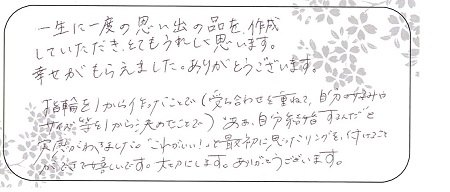 一生に一度の思い出の品を、作成
していただき、とてもうれしく思います。
幸せがもらえました。ありがとうございます。
指輪を1から作ることで(打ち合わせを重ねて、自分の好みや
サイズ等を1から決めたことで)ああ、自分結婚するんだと
実感がわきました。"これがいい!"と最初に思ったリングを、付けること
ができて嬉しいです。大切にします。ありがとうございます。